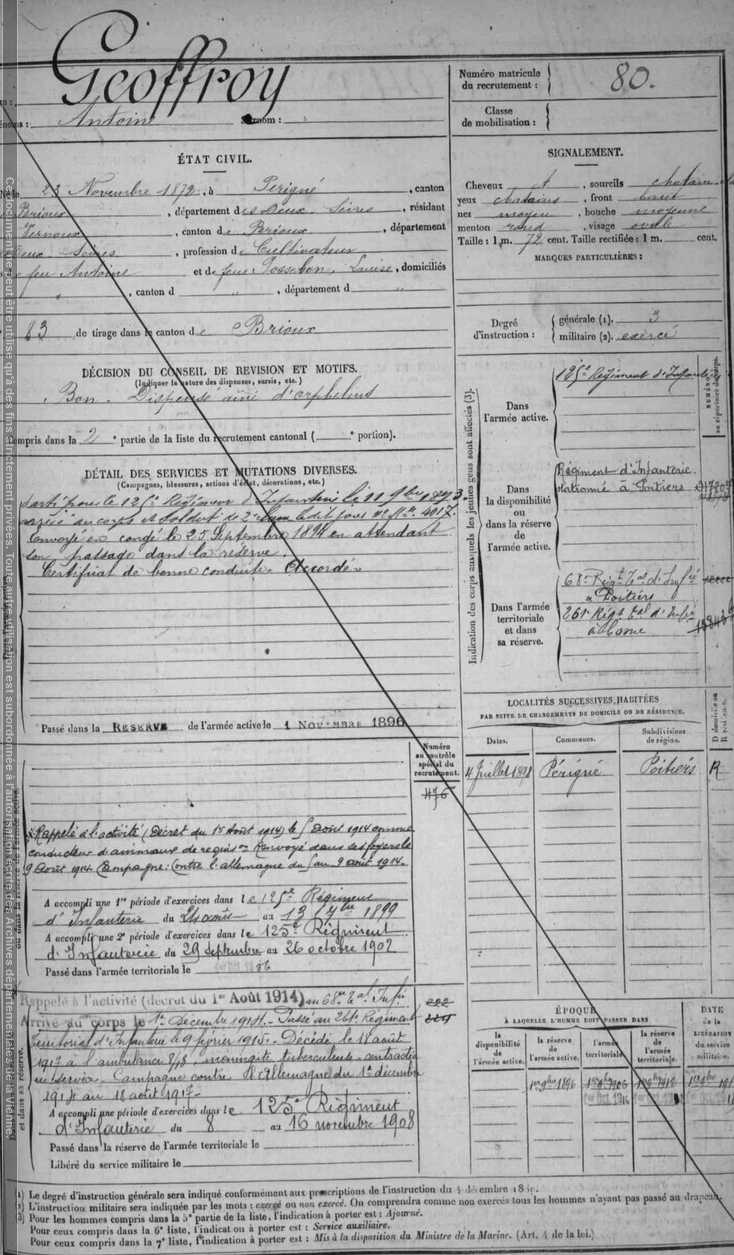 Geoffroy
Numéro matricule
du recrutement :
80.
Antoine
Surnom :
Classe
de mobilisation :
ÉTAT CIVIL.
SIGNALEMENT.
23 Novembre 1872, à Périgné, canton
Brioux, département des Deux-Sèvres, résidant
Vernoux, canton de Brioux, département
Deux Sèvres, profession de Cultivateur
feu Antoine et de feue Louise, domiciliés
, canton d , département d
Cheveux , sourcils
yeux chatains, front
nez moyen, bouche moyenne
menton rond, visage ovale
Taille : 1 m. 72 cent. Taille rectifiée : 1 m. cent.
MARQUES PARTICULIÈRES :
83 de tirage dans le canton de Brioux
Degré
d'instruction :
générale (1). 3
militaire (2). exercé
DÉCISION DU CONSEIL DE REVISION ET MOTIFS.
(Indiquer la nature des dispenses, sursis, etc.)
Bon. Dispensé ainé d'orphelins
Compris dans la 2e partie de la liste du recrutement cantonal ( e portion).
DÉTAIL DES SERVICES ET MUTATIONS DIVERSES.
(Campagnes, blessures, actions d'éclat, décorations, etc.)
parti pour le 125e Régiment d'Infanterie le 11 9bre 1893.
au corps et Soldat de 2e classe le dit jour No Mle 4017.
Envoyé en congé le 25 Septembre 1894 en attendant
son passage dans la réserve.
Certificat de bonne conduite Accordé
Passé dans la RÉSERVE de l'armée active le 1 NOVEMBRE 1896
Indication des corps auxquels les jeunes gens sont affectés (3).
Dans
l'armée active.
125e Régiment d'Infanterie
Dans
la disponibilité
ou
dans la réserve
de
l'armée active.
Régiment d'Infanterie
stationné à Poitiers
Dans l'armée
territoriale
et dans
sa réserve.
68e Régt Tal d'Infie
à Poitiers
261e Régt Tal d'Infie
LOCALITÉS SUCCESSIVES HABITÉES
PAR SUITE DE CHANGEMENTS DE DOMICILE OU DE RÉSIDENCE.
Dates.
Communes.
Subdivisions
de région.
4 Juillet 1898 Périgné Poitiers R
Numéro
au contrôle
spécial du
recrutement.
476
Rappelé à l'activité (Décret du 1er Août 1914) le 5 Août 1914 comme
conducteur d'animaux de Renvoyé dans ses foyers le
9 Août 1914. Campagne : Contre l'allemagne du 5 au 9 août 1914.
A accompli une 1re période d'exercices dans le 125e Régiment
d'Infanterie du août au 13 7bre 1899
A accompli une 2e période d'exercices dans le 125e Régiment
d'Infanterie du 29 septembre au 26 octobre 1902
Passé dans l'armée territoriale le
Rappelé à l'activité (décret du 1er Août 1914) au 68e Tal Infie
Arrivé au corps le 1er Décembre 1914. Passé au 261e Régiment
Territorial d'Infanterie le 9 février 1915. Décédé le 18 août
1917 à l'ambulance 2/8 méningite tuberculeuse contractée
en service. Campagne contre l'Allemagne du 1er décembre
1914 au 18 août 1917
A accompli une période d'exercices dans le 125e Régiment
d'Infanterie du 8 au 16 novembre 1908
Passé dans la réserve de l'armée territoriale le
Libéré du service militaire le
ÉPOQUE
À LAQUELLE L'HOMME DOIT PASSER DANS
DATE
de la
LIBÉRATION
du service
militaire.
la
disponibilité
de
l'armée active.
la réserve
de
l'armée active.
l'armée
territoriale.
la réserve
de
l'armée
territoriale.
1er 9bre 1896
(1) Le degré d'instruction générale sera indiqué conformément aux prescriptions de l'instruction du 4 décembre
(2) L'instruction militaire sera indiquée par les mots : exercé ou non exercé. On comprendra comme non exercés tous les hommes n'ayant pas passé au drapeau.
(3) Pour les hommes compris dans la 5e partie de la liste, l'indication à porter est : Ajourné.
Pour ceux compris dans la 6e liste, l'indication à porter est : Service auxiliaire.
Pour ceux compris dans la 7e liste, l'indication à porter est : Mis à la disposition du Ministre de la Marine. (Art. 4 de la loi.)